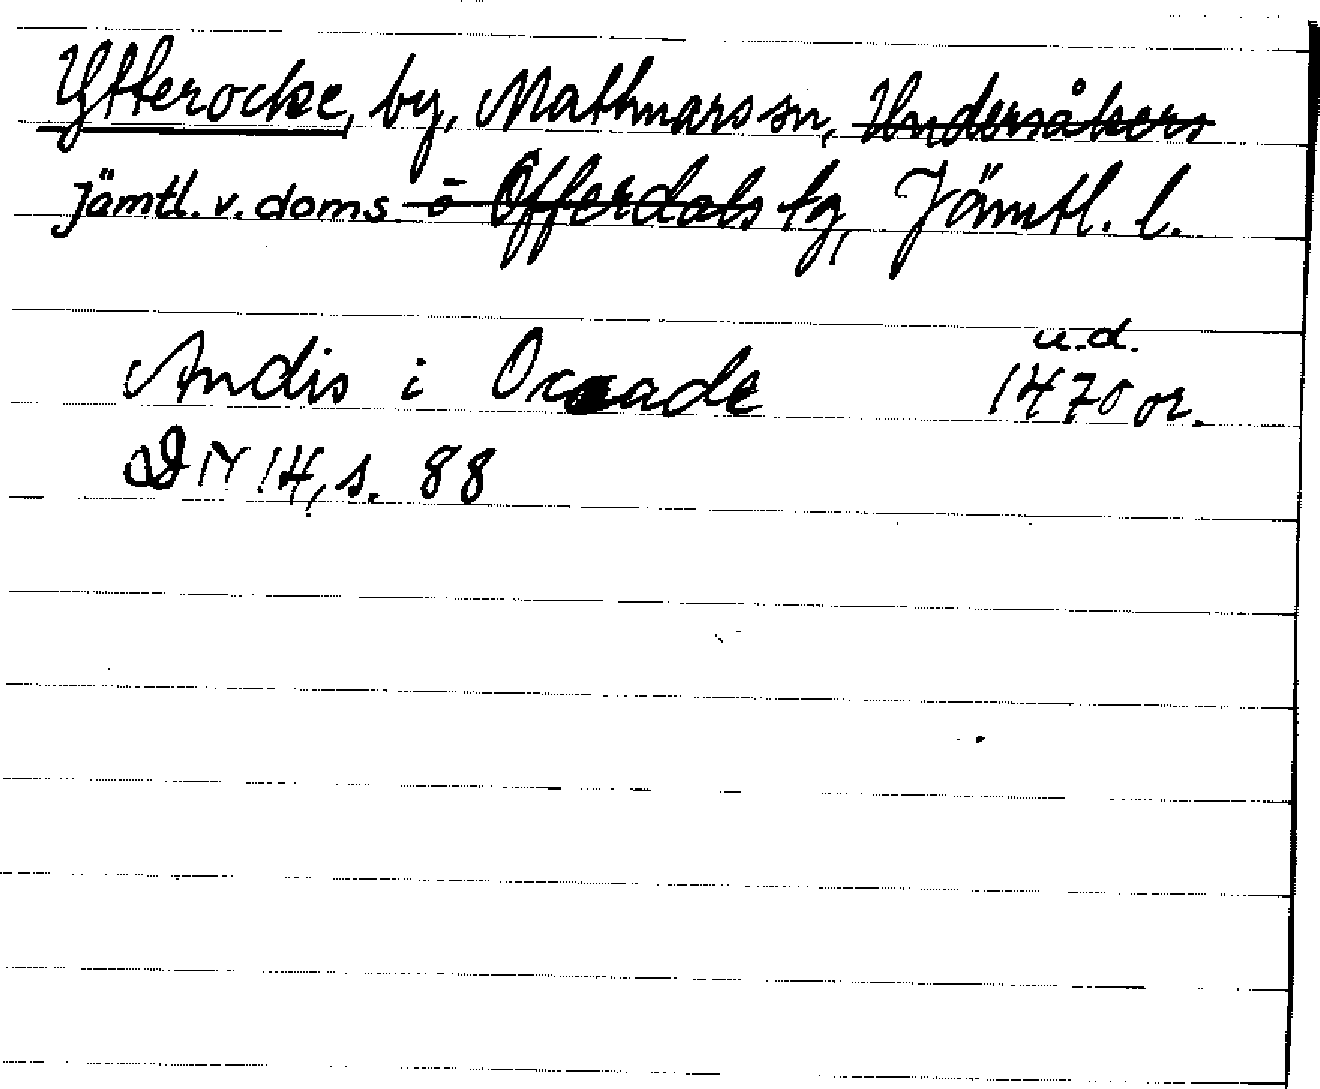 Ytterocke, by, Mattmars sn, Undersåkers
Jämtl. v. doms. o Offerdals tg, Jämtl. l.
u.d.
Andis i Ocade 1470 or.
DN 14, s. 88